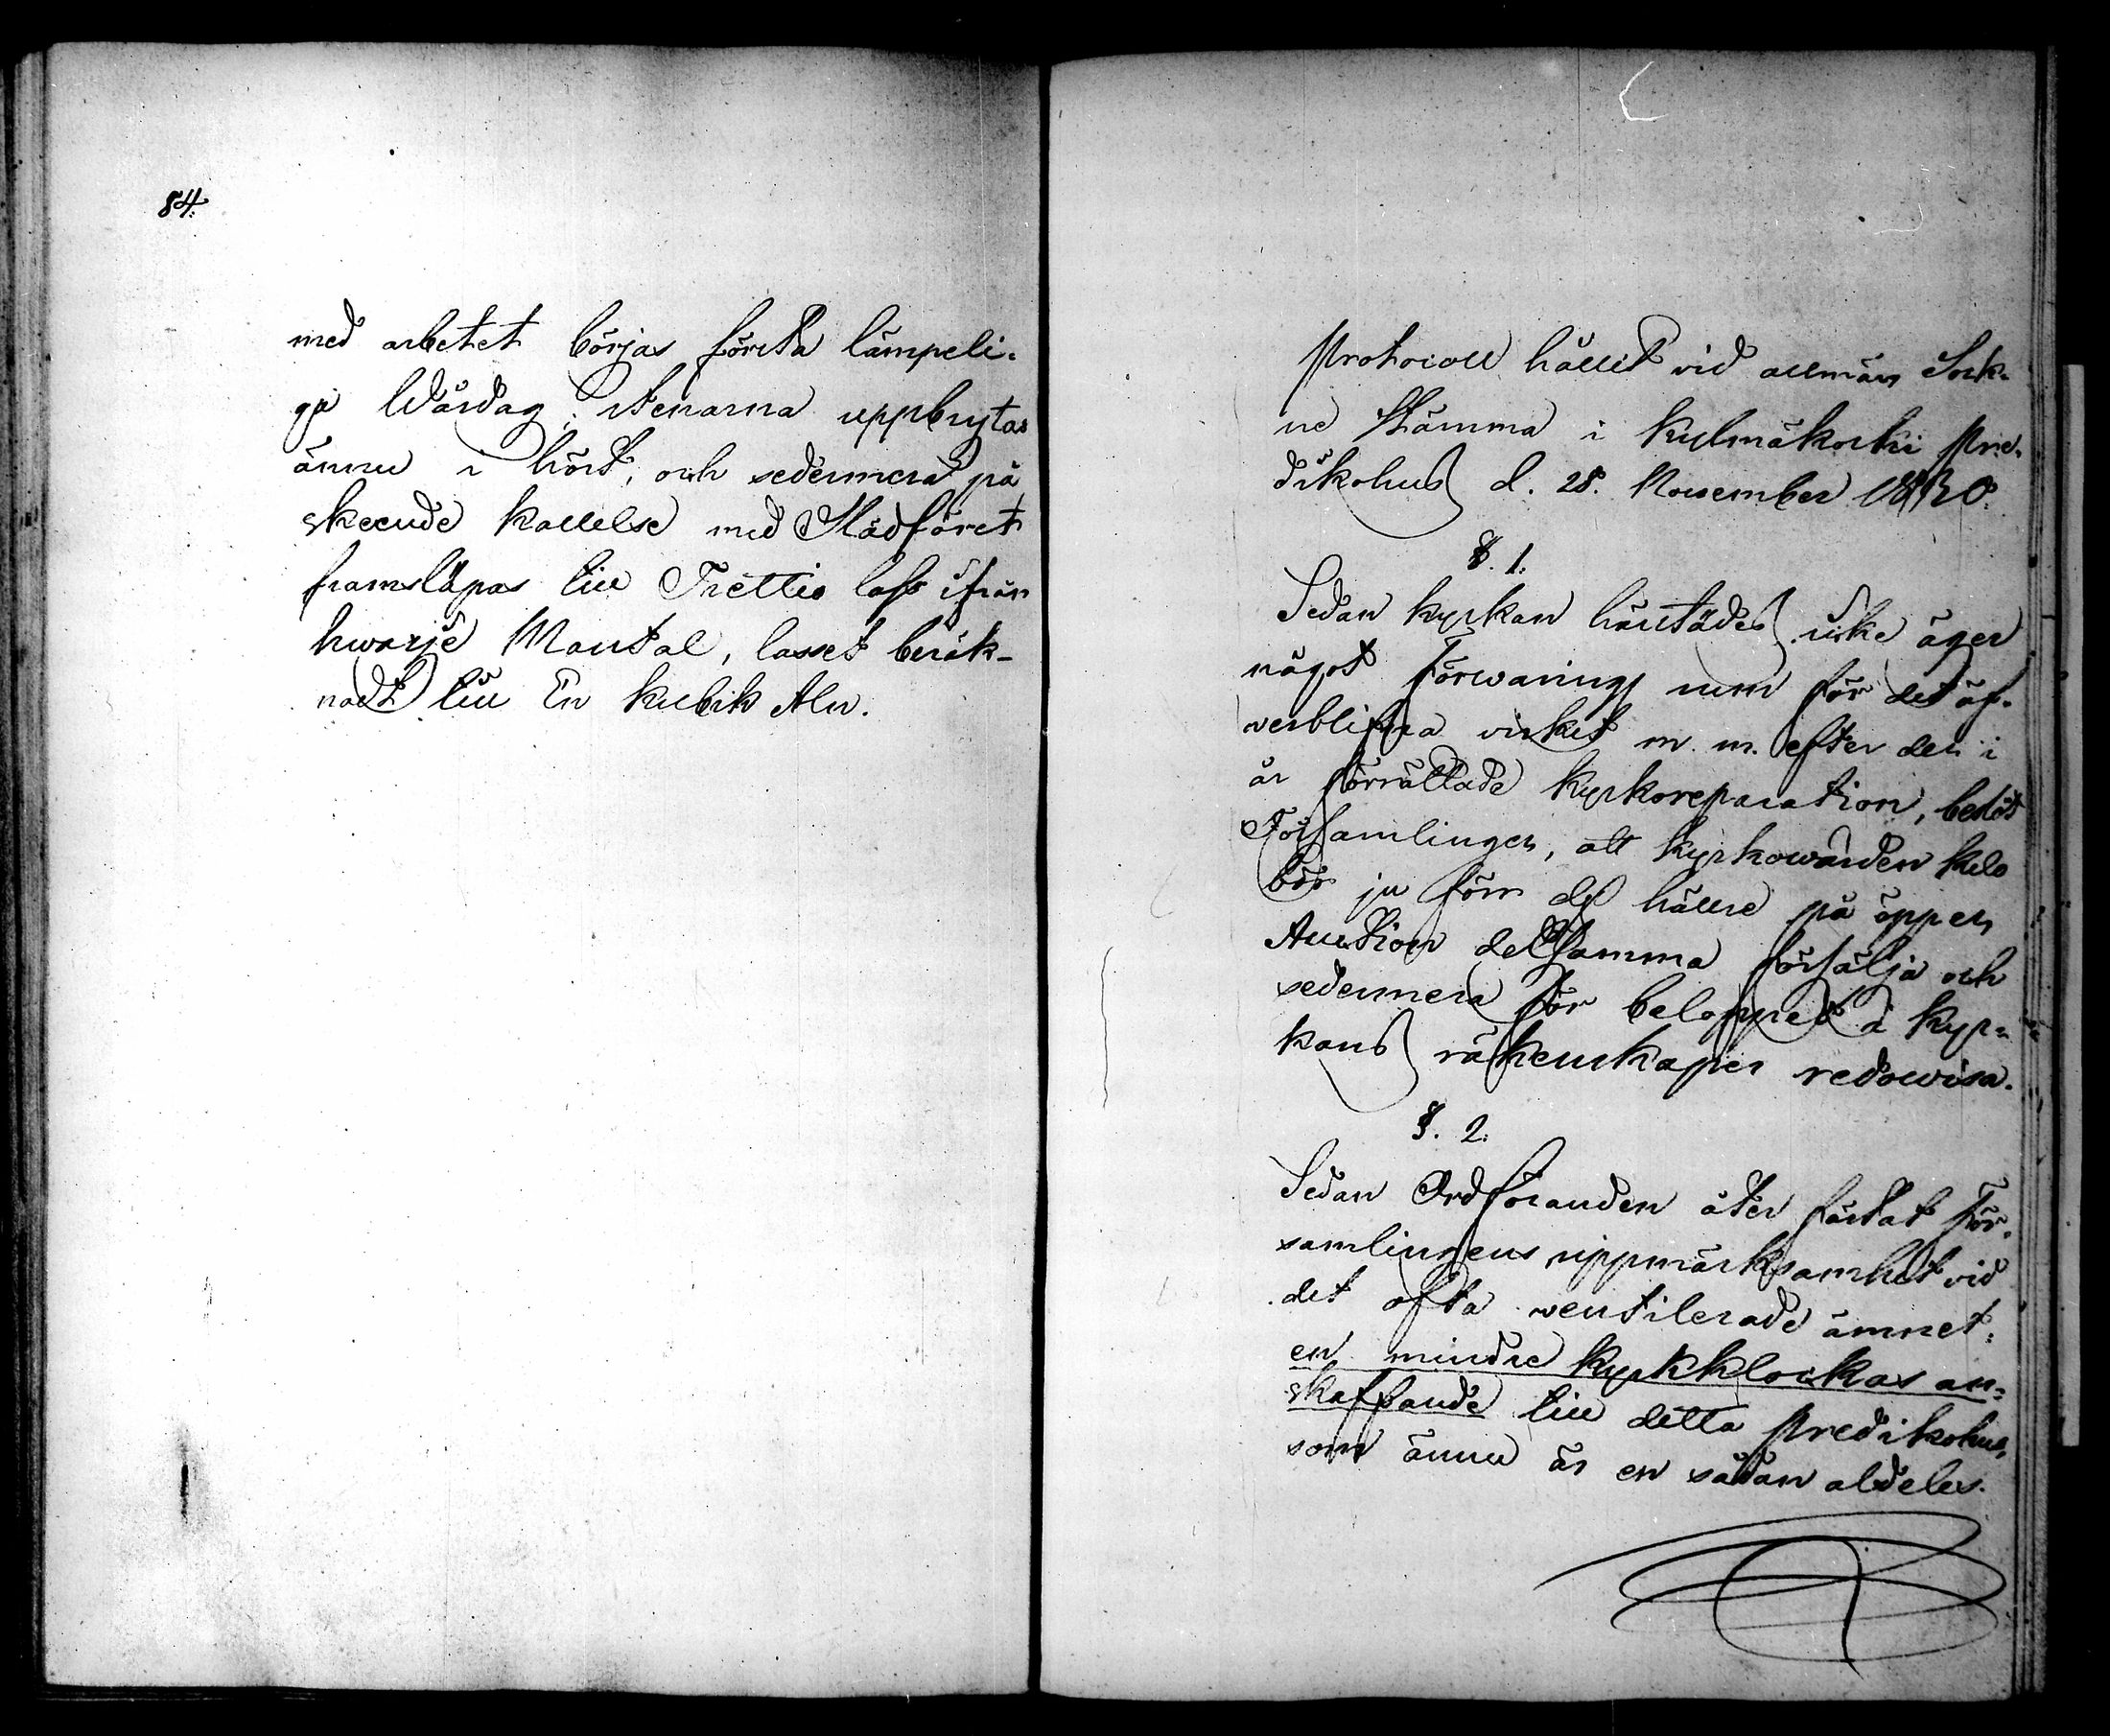 84.
med arbetet börjas första lämpeli-
ga Wårdag; stenarna uppbrytas
ännu i höst, och sedermera på
skeende kallelse med Slädföret
framsläpas till Trettio lass ifrån
hwarje Mantal, lasset beräk-
nadt till En kubik Aln.
Protocoll hållit vid allmän Sock-
ne Stämma i Kylmäkoski Pre-
dikohus d. 28. November 1830.
§. 1.
Sedan kyrkan härstädes icke äger
något Förwarings rum för det öf-
werblifna virket m. m. efter den i
år förrättade kyrkoreparation, beslöt
Församlingen, att kyrkowärden
bör ju förr dess hällre på öppen
Auction detsamma försälja och
sedermera för beloppet i kyr-
kans räkenskaper redowisa.
§. 2.
Sedan Ordföranden åter fästat För-
samlingens uppmärksamhet vid
det ofta ventilerade ämnet:
en mindre kyrkklockas an-
skaffande till detta Predikohus,
som ännu är en sådan aldeles